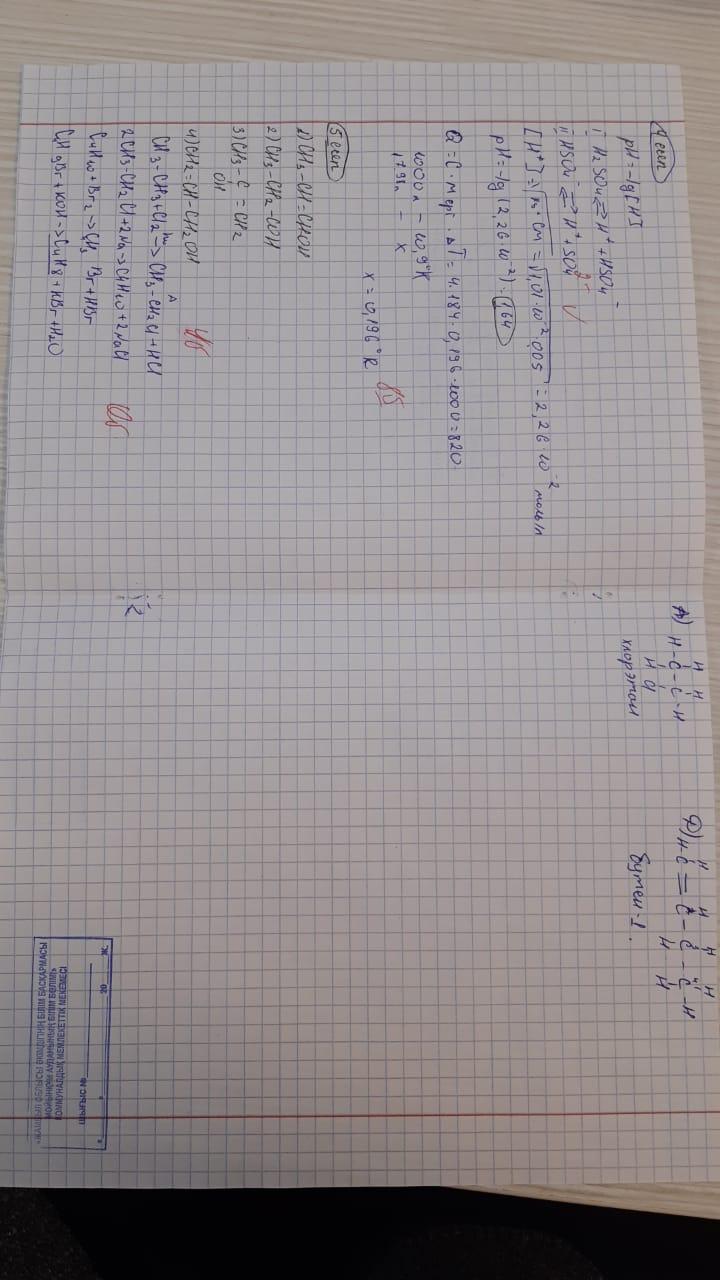 4 есеп
pH=-lg[H]
I H₂SO₄⇄H⁺+HSO₄⁻
II HSO₄⁻⇄H⁺+SO₄²⁻
[H⁺]=√K·Cм=√1,01·10⁻²·0,05=2,26·10⁻² моль/л
pH=-lg(2,26·10⁻²)=1,64
Q=C·m·ΔT=4.184·0,196·1000=820
1000 - 10,9°K
17,98 - x
x=0,196°K
8б
5 есеп
1) CH₃-CH=CHOH
2) CH₃-CH₂-COH
3) CH₃-C=CH₂
OH
4) CH₂=CH-CH₂OH
4б
CH₃-CH₃+Cl₂ hν→CH₃-CH₂Cl+HCl
A
2CH₃-CH₂Cl+2Na→C₄H₁₀+2NaCl
C₄H₁₀+Br₂→CH₃ Br+HBr
C₄H₉Br+KOH→C₄H₈+KBr+H₂O
10б
A) H H
H-C-C-H
H Cl
хлорэтан
Ф) H H H H
H-C=C-C-C-H
H H
бутен-1.
«ЖАМБЫЛ ОБЛЫСЫ ӘКІМДІГІНІҢ БІЛІМ БАСҚАРМАСЫ
МОЙЫНҚҰМ АУДАНЫНЫҢ БІЛІМ БӨЛІМІ»
КОММУНАЛДЫҚ МЕМЛЕКЕТТІК МЕКЕМЕСІ
ШЫҒЫС №
« » 20 Ж.